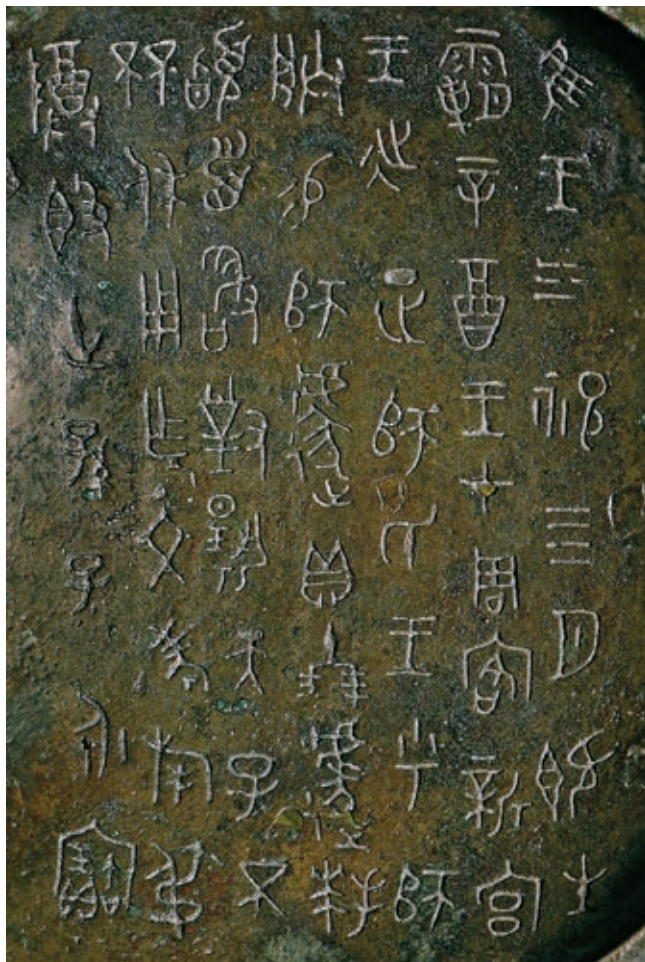 隹王三祀亖月既生
霸辛酉王才周客新宮
王𢓊正師氏王乎師
朕易師遽貝十朋遽拜
𩒨首敢對揚天子不
𠦪休用乍文考旄弔
𣪘世孫子永寶